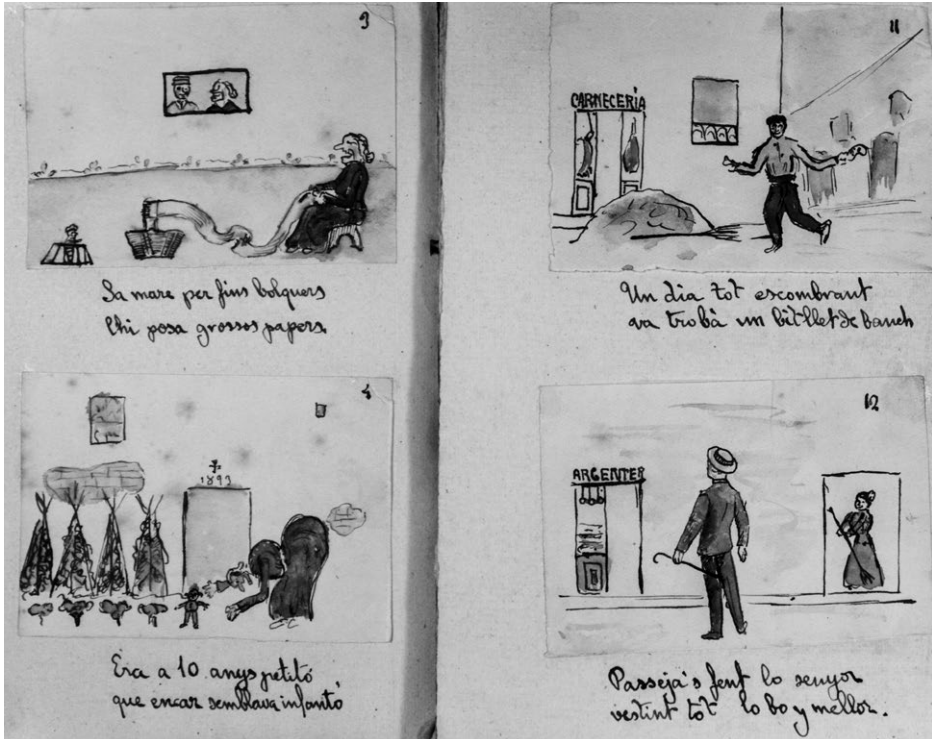 3
Sa mare per fins bolquers
l'hi posa grossos papers.
4
1893
Era a 10 anys petitó
que encar semblava infantó
11
CARNECERIA
Un dia tot escombrant
va trobà un bitllet de banch
12
ARGENTER
Passeja's fent lo senyor
vestint tot lo bo y mellor.